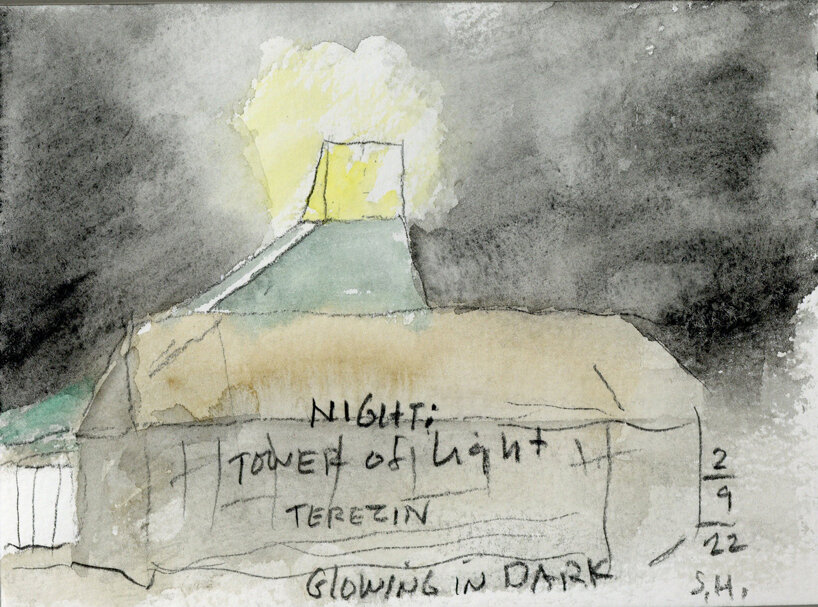 NIGHT:
TOWER of Light
TEREZIN
GLOWING IN DARK
2
9
22
S.H.